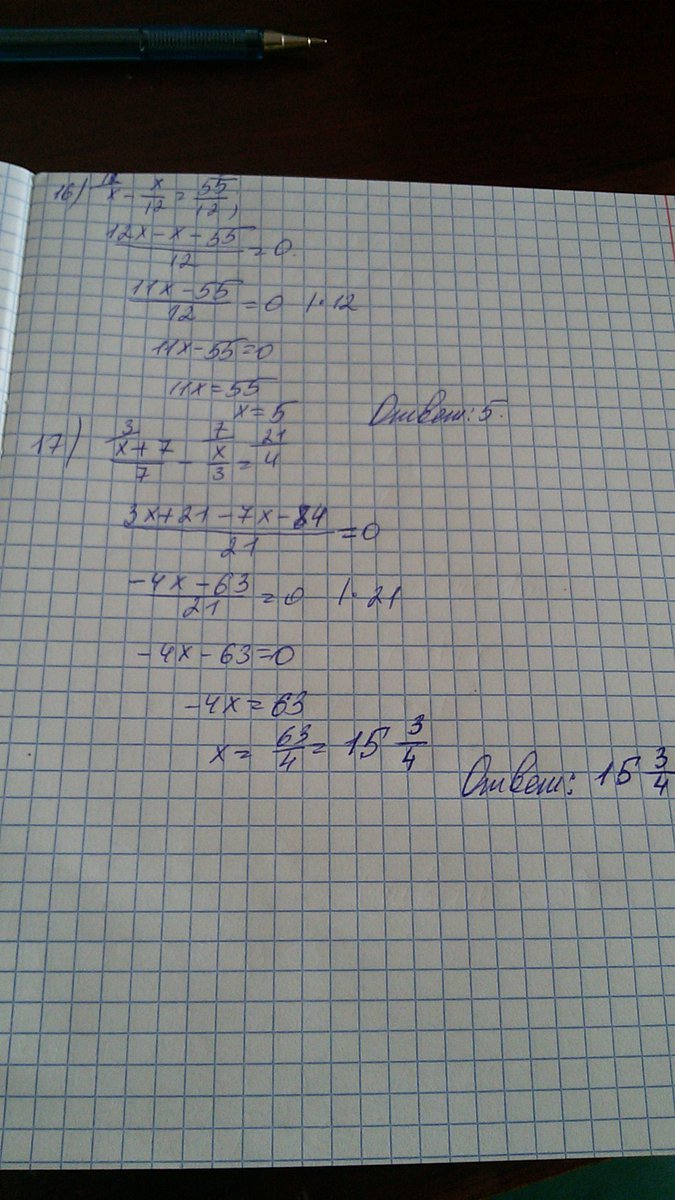 16) 12/x - x/12 = 55/12)
12x-x-55/12 = 0.
11x-55/12 = 0 |·12
11x-55=0
11x=55
x=5 Ответ: 5.
17) 3/x+7/7 - 7/x/3 = 21/4
3x+21-7x-84/21 = 0
-4x-63/21 = 0 |·21
-4x-63=0
-4x=63
x= 63/4 = 15 3/4
Ответ: 15 3/4